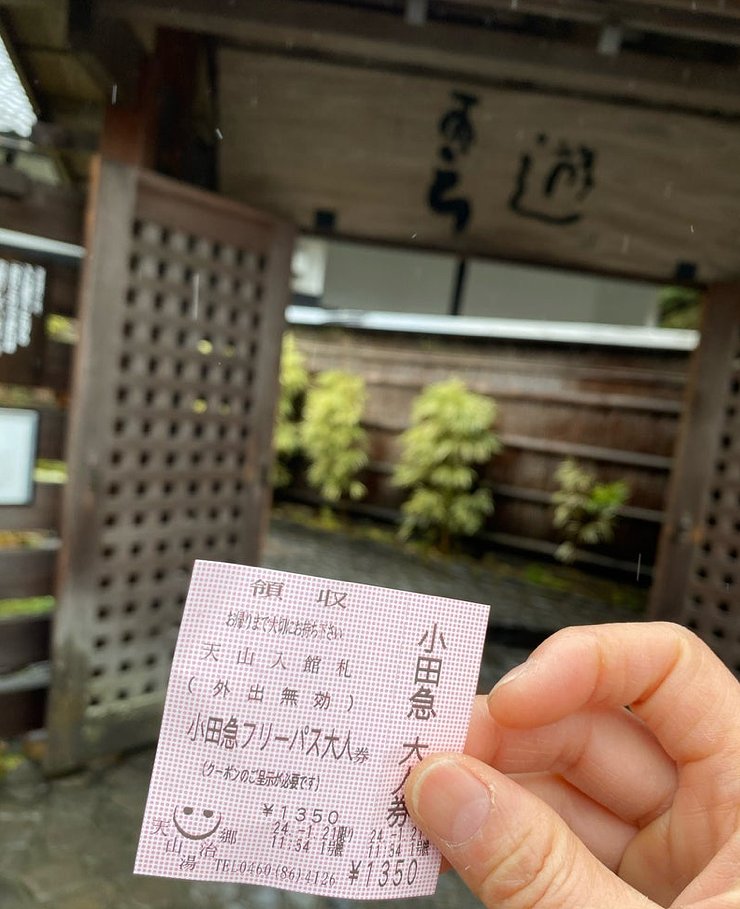 遊
領 収
お帰りまで大切にお持ち下さい
天 山 入 館 札
( 外 出 無 効 )
小田急フリーパス大人券
(クーポンのご呈示が必要です)
¥1350
24 -1 21限り
11:54
天山湯治郷
TEL0460(86)4126
小田急 大人券
24 -1 21
11:54
¥1350